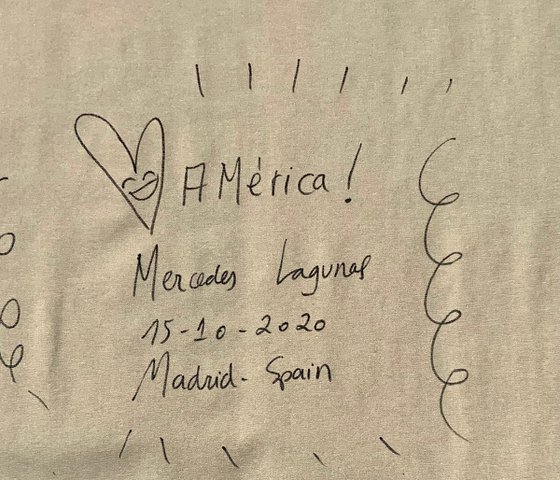 AMérica!
Mercedes Lagunas
15-10-2020
Madrid- Spain